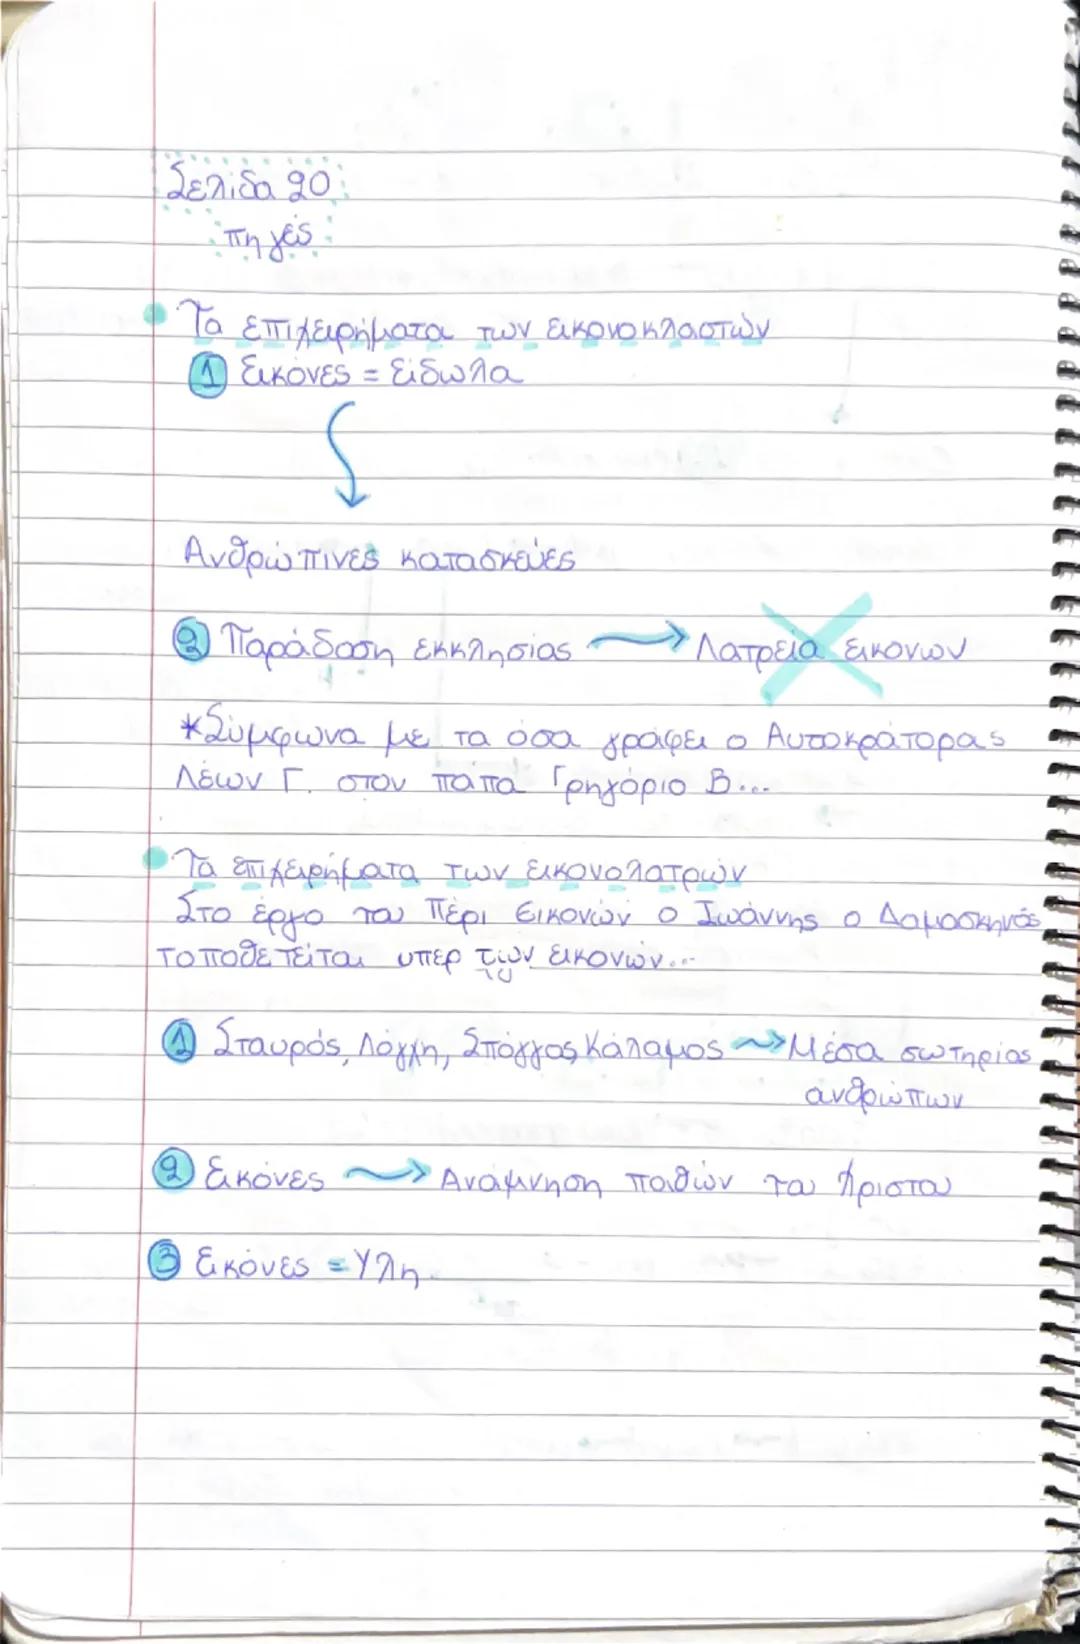 Σελίδα 20
πηγές
Τα επιχειρήματα των εικονοκλαστών
1 Εικόνες = Είδωλα
Ανθρώπινες κατασκευές
2 Παράδοση εκκλησίας → Λατρεία εικονων
*Σύμφωνα με τα όσα γράφει ο Αυτοκράτορας
Λέων Γ. στον πάπα Γρηγόριο Β...
Τα επιχειρήματα των εικονολατρών
Στο έργο του Πέρι Εικονών ο Ιωάννης ο Δαμασκηνός
τοποθετείται υπερ των εικονών...
1 Σταυρός, Λόγχη, Σπόγγος, Κάλαμος → Μέσα σωτηρίας
ανθρώπων
2 Εικόνες → Ανάμνηση παθών του Χριστου
3 Εικόνες = Υλη.